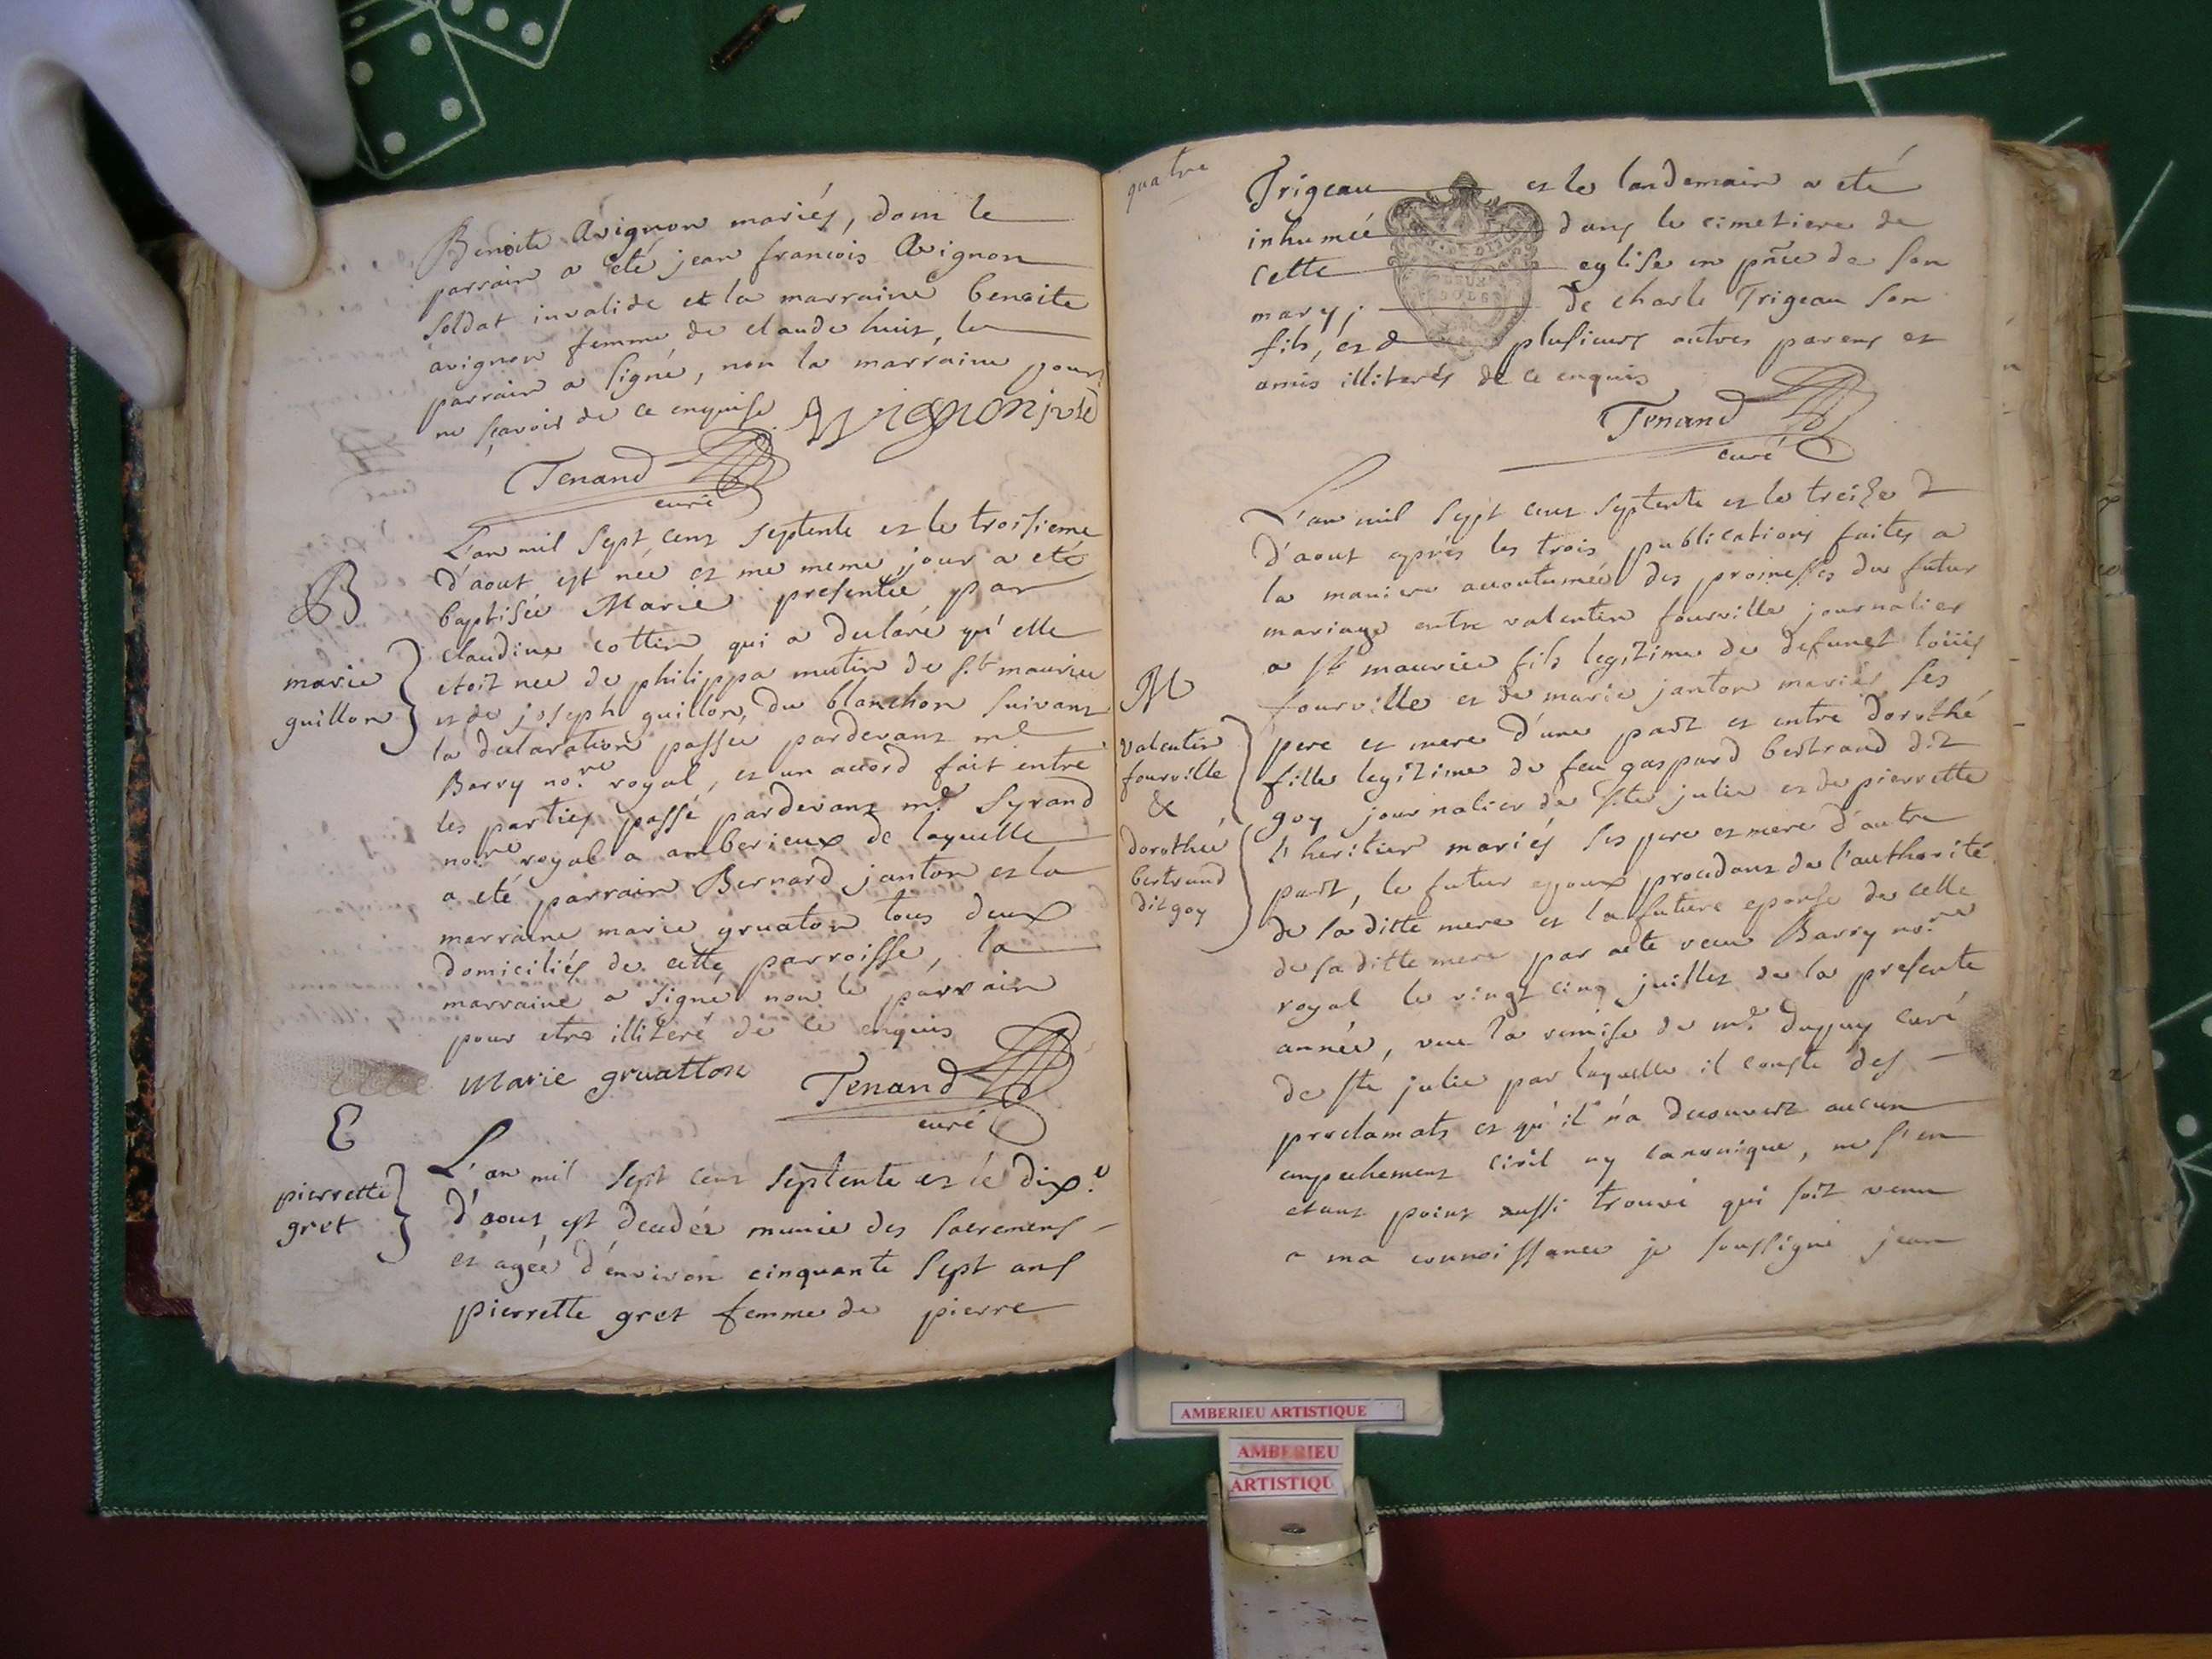 Benoite Avignon mariés, dont le
parrain a été jean francois Avignon
soldat invalide et la marraine benoite
avignon femme de claude huit, le
parrain a signé, non la marraine pour
ne sçavoir de ce enquise. Avignon
Tenand
curé
B
marie
guillon
L'an mil sept cent septente et le troisieme
d'aout est née et me meme jour a eté
baptisée Marie presentée par
claudine cottin qui a declaré qu'elle
etoit née de philippa mutin de st maurice
et de joseph guillon, du blanchon suivant
la declaration passée pardevant me
Barry nore royal, et un accord fait entre
les parties passé pardevant me Syrand
nore royal a amberieux de laquelle
a eté parrain Bernard janton et la
marraine marie gruaton tous deux
domiciliés de cette parroisse, la
marraine a signé non le parrain
pour etre illiteré de ce enquis
Marie gruatton Tenand
curé
E
pierrette
gret
L'an mil sept cent septente et le dixe
d'aout est decedée munie des sacremens
et agée d'environ cinquante sept ans
pierrette gret femme de pierre
quatre
Trigeau et le landemain a eté
inhumée dans le cimetiere de
cette eglise en pñce de son
mary, de charle Trigeau son
fils, et de plusieurs autres parens et
amis illiterés de ce enquis
Tenand
curé
M
valentin
fourville
&
dorothée
bertrand
dit goy
L'an mil sept cent septente et le treize
d'aout après les trois publications faites a
la maniere accoutumée des promesses du futur
mariage entre valentin fourville journalier
a st maurice fils legitime de defunct loüis
fourville et de marie janton mariés ses
pere et mere d'une part et entre dorothé
fille legitime de feu gaspard bertrand dit
goy journalier de ste julie et de pierrette
l'heritier mariés ses pere et mere d'autre
part, le futur epoux procedant de l'authorité
de sa ditte mere et la future epouse de celle
de sa ditte mere par acte receu Barry nore
royal le vingt cinq juillet de la presente
année, vue la remise de mr dupuy curé
de ste julie par laquelle il conste des
proclamats et qu'il n'a decouvert aucun
empechement civil ny canonique, ne s'en
etant point aussi trouvé qui soit venu
a ma connoissance je soussigné jean
AMBERIEU ARTISTIQUE
AMBERIEU
ARTISTIQU